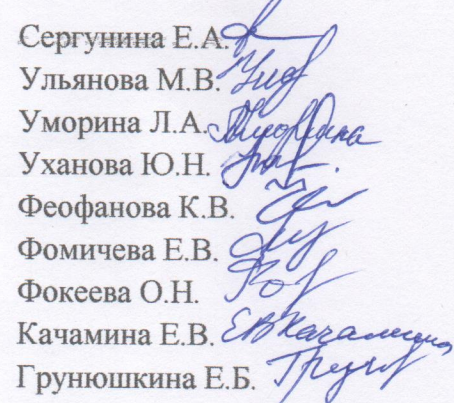 Сергунина Е.А.
Ульянова М.В.
Уморина Л.А.
Уханова Ю.Н.
Феофанова К.В.
Фомичева Е.В.
Фокеева О.Н.
Качамина Е.В.
Грунюшкина Е.Б.